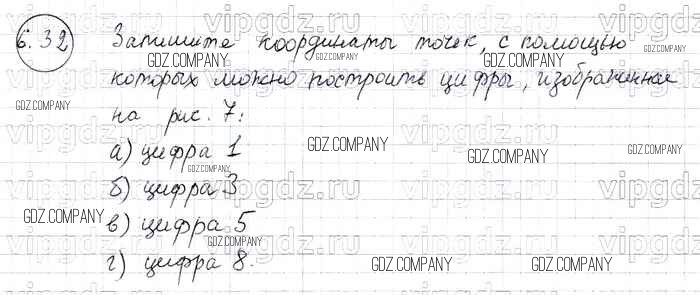 6.32 Запишите координаты точек, с помощью
которых можно построить цифры, изображенные
на рис. 7:
а) цифра 1
б) цифра 3
в) цифра 5
г) цифра 8.
vipgdz.ru
GDZ.COMPANY